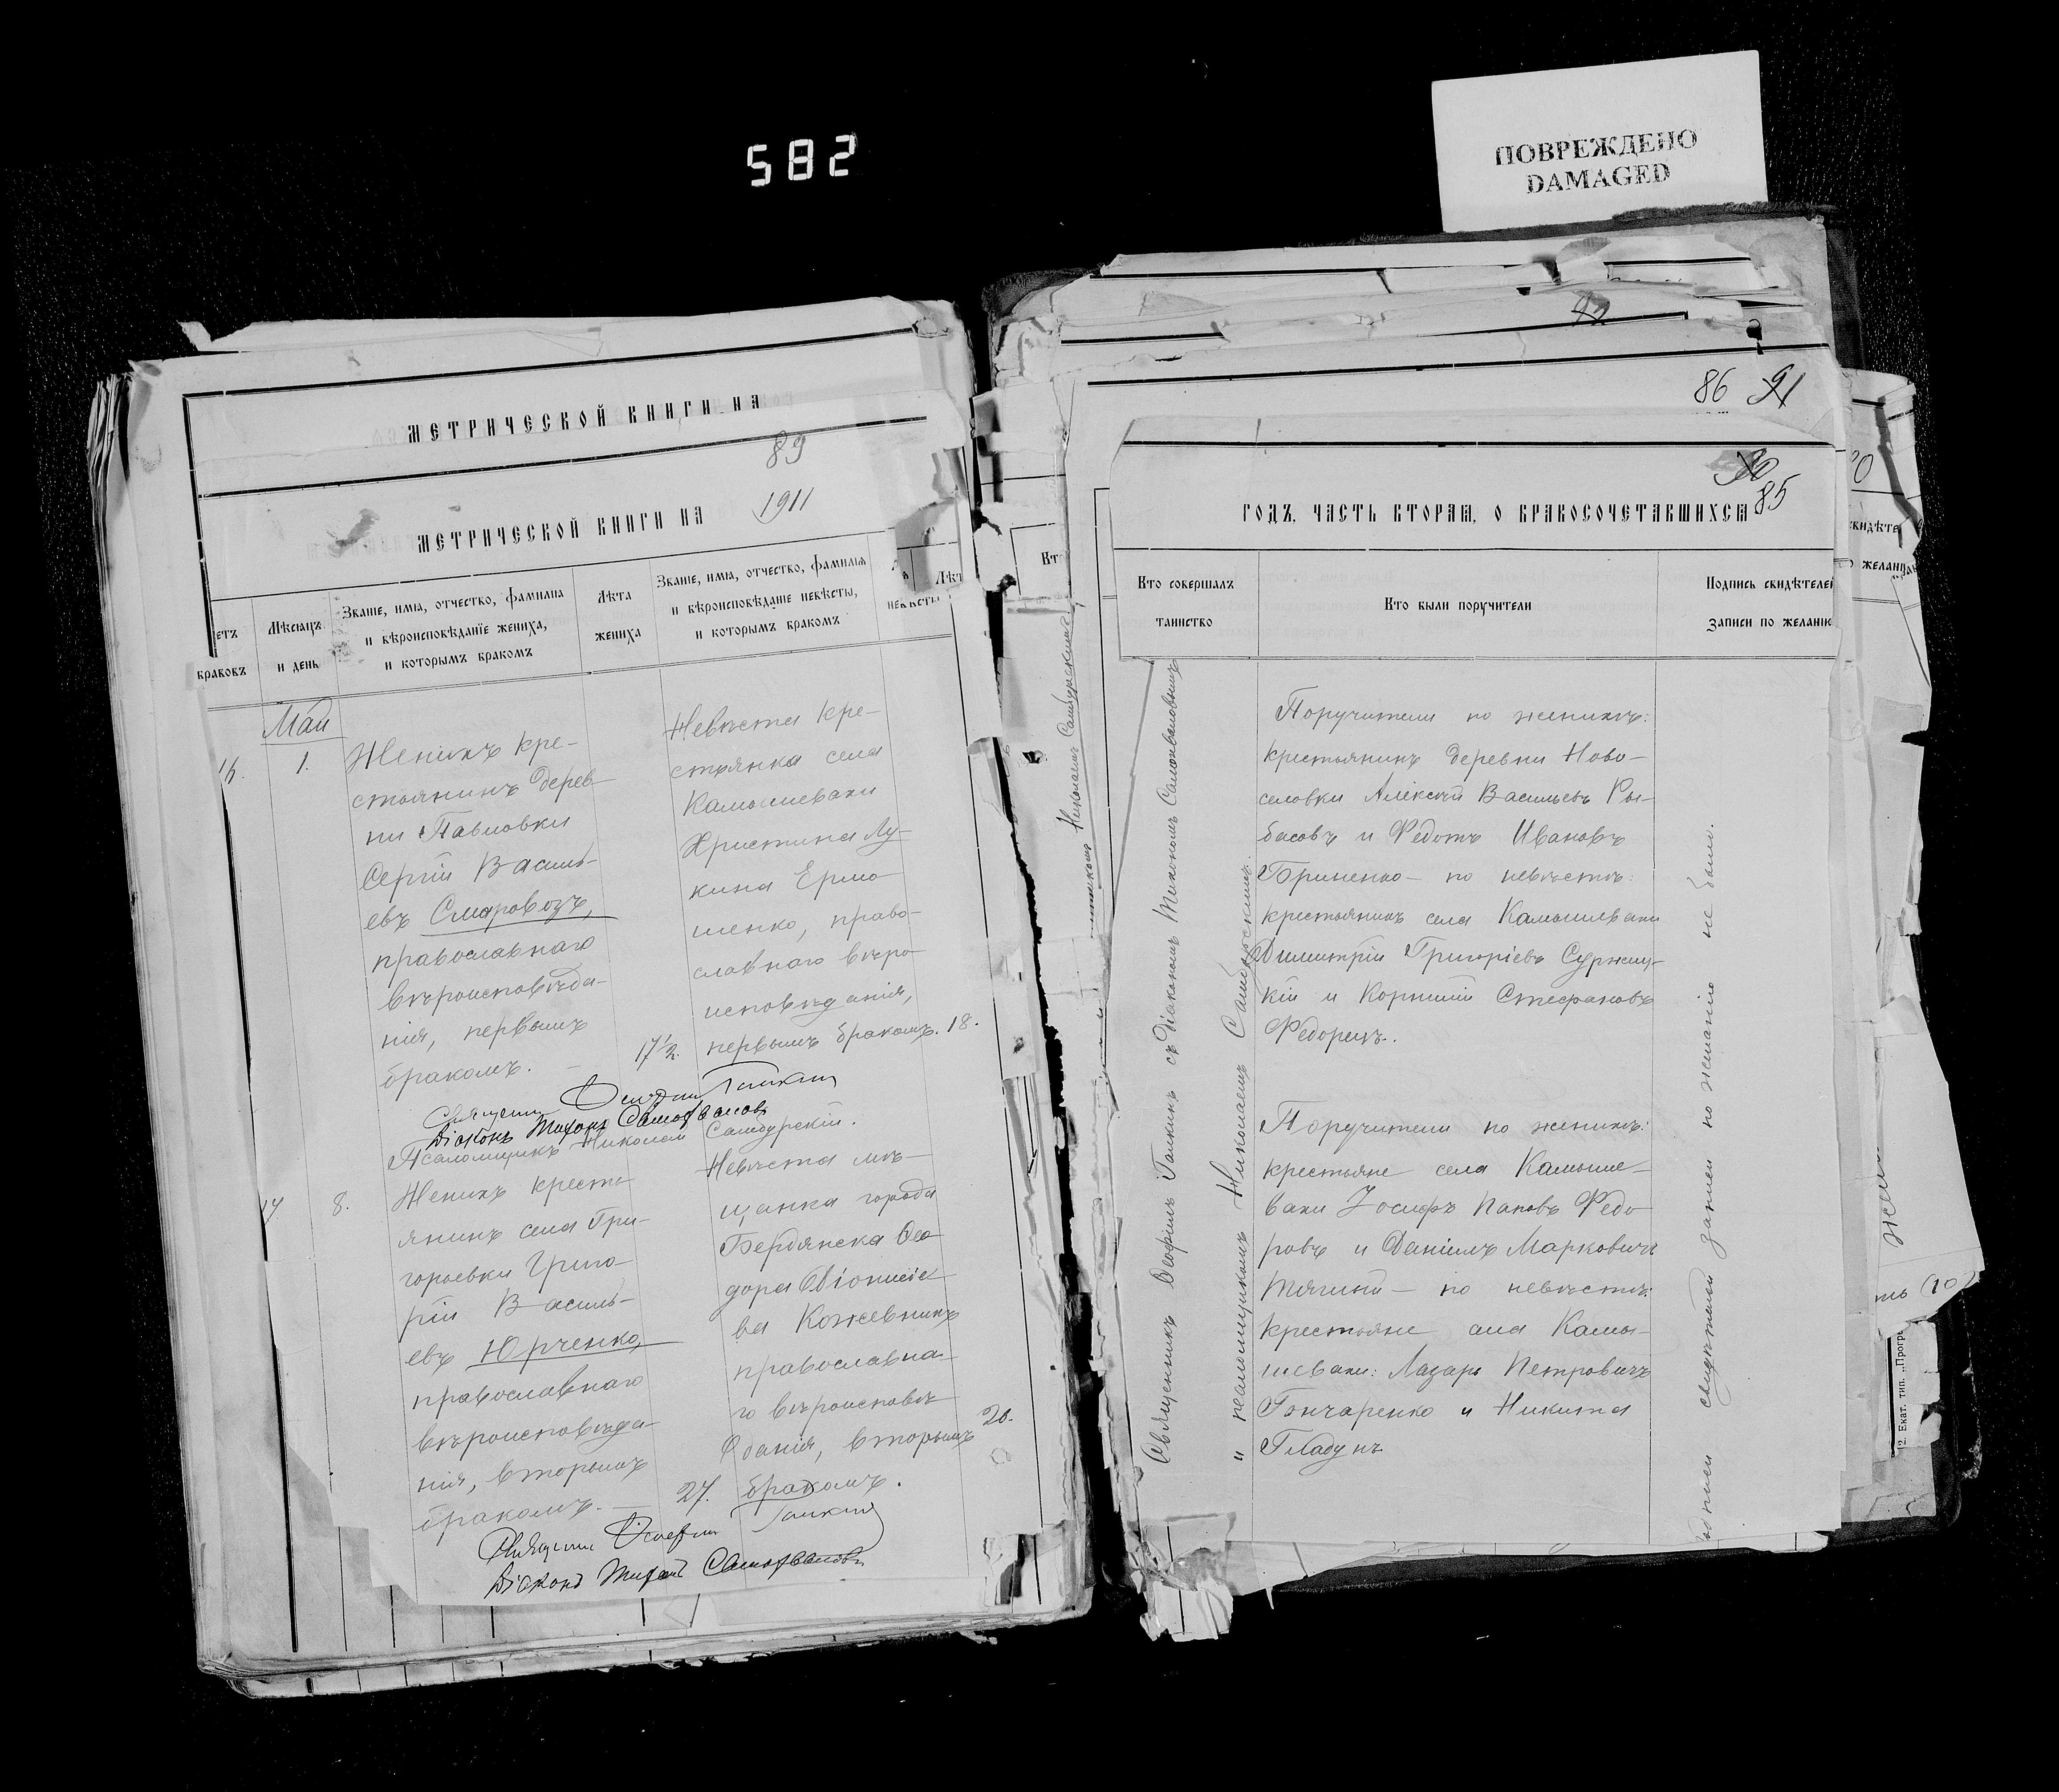 582
ПОВРЕЖДЕНО
DAMAGED
МЕТРИЧЕСКОЙ КНИГИ НА
89
МЕТРИЧЕСКОЙ КНИГИ НА 1911
браковъ
Мѣсяцъ
и день
Званіе, имя, отчество, фамилія
и вѣроисповѣданіе жениха,
и которымъ бракомъ
Лѣта
жениха
Званіе, имя, отчество, фамилія
и вѣроисповѣданіе невѣсты,
и которымъ бракомъ
невѣсты
Май
16.
1.
Женихъ кре-
стьянинъ дерев-
ни Павловки
Сергій Василь-
евъ Смаровозъ,
православнаго
вѣроисповѣда-
нія, первымъ
бракомъ. —
17½.
Невѣста кре-
стьянка села
Камышевахи
Христина Лу-
кина Ермо-
шенко, право-
славнаго вѣро-
исповѣданія,
первымъ бракомъ.
18.
Діаконъ Тихонъ Самохваловъ
Псаломщикъ Николай Самбурскій.
17
8.
Женихъ кресть-
янинъ села Гри-
горьевки Григо-
рій Василь-
евъ Юрченко,
православнаго
вѣроисповѣда-
нія, вторымъ
бракомъ. —
27.
Невѣста мѣ-
щанка города
Бердянска Ѳео-
дора Діонисіе-
ва Кожевникъ
православна-
го вѣроисповѣ-
данія, вторымъ
бракомъ.
20.
Священникъ Ѳеофилъ Галкинъ
Діаконъ Тихонъ Самохваловъ
86 91
90
85
ГОДЪ, ЧАСТЬ ВТОРАЯ, О БРАКОСОЧЕТАВШИХСЯ
Кто совершалъ
таинство
Кто были поручители
Подпись свидѣтелей
записи по желанію
Николаемъ Самбурскимъ
Священникъ Ѳеофилъ Галкинъ съ Діакономъ Тихономъ Самохваловымъ
и псаломщикомъ Николаемъ Самбурскимъ.
Поручители по женихѣ:
крестьянинъ деревни Ново-
селовки Алексѣй Васильевъ Ры-
басовъ и Федотъ Ивановъ
Бриненко — по невѣстѣ:
крестьянинъ села Камышевахи
Димитрій Григоріевъ Суржиц-
кій и Корнилій Стефановъ
Федорецъ.
Поручители по женихѣ:
крестьяне села Камыше-
вахи Іосифъ Федо-
ровъ и Даніилъ Марковичъ
Тяглый — по невѣстѣ:
крестьяне села Камы-
шевахи: Лазарь Петровичъ
Гончаренко и Никита
Гладунъ
свидѣтелей записи по желанію не было.
2. Екат. тип. „Прогре